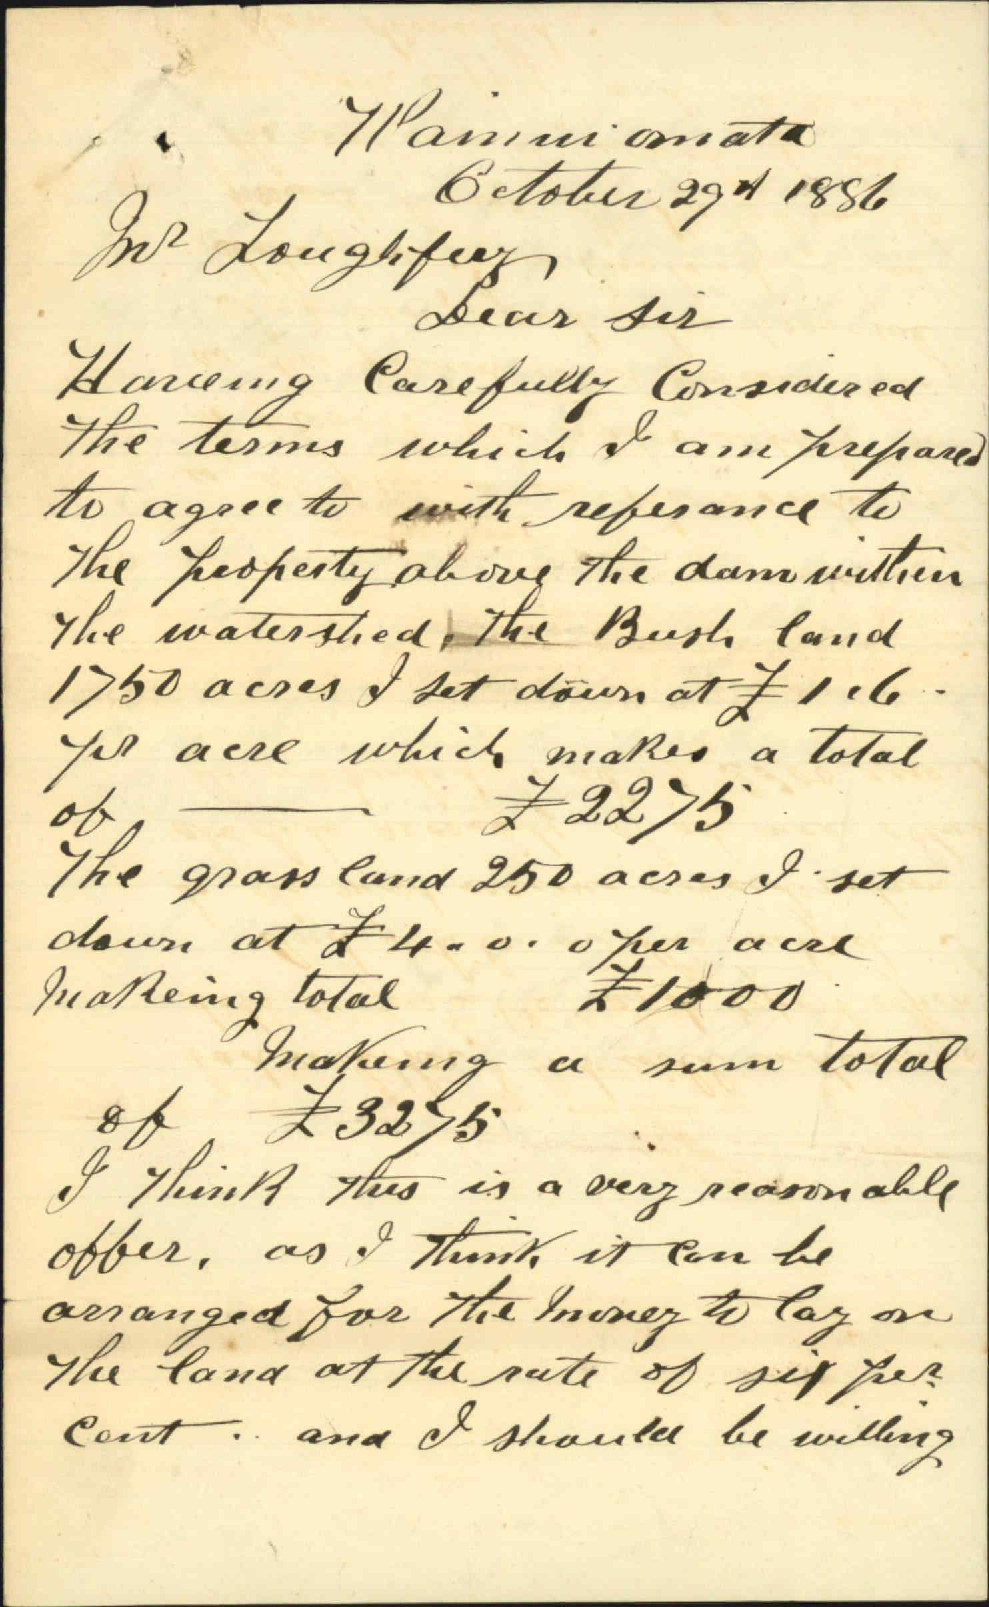 Wainuiomata
October 29th 1886
Mr Loughfrey
Dear Sir
Haveing Carefully Considered
the terms which I am prepared
to agree to with referance to
the property above the dam within
the watershed. The Bush land
1750 acres I set down at £ 1 " 6 -
pr acre which makes a total
of ——— £2275
The grass land 250 acres I set
down at £4 - 0 - 0 per acre
Makeing total £1000
Makeing a sum total
of £3275
I think this is a very reasonable
offer, as I think it can be
arranged for the money to lay on
the land at the rate of six per
Cent .. and I should be willing